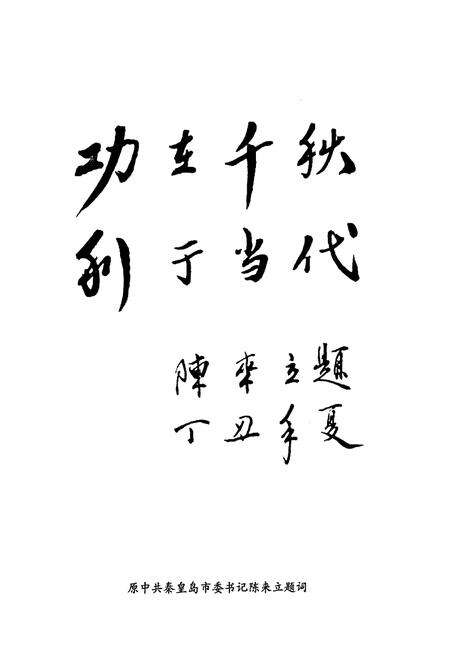 功在千秋
利于当代
陳来立题
丁丑年夏
原中共秦皇岛市委书记陈来立题词